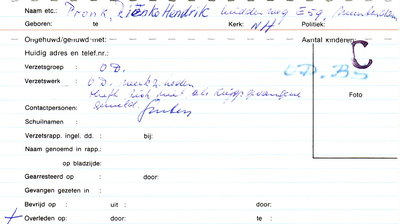 Naam etc.: Pronk, Rienke Hendrik Middenweg E59,
Geboren: te Kerk: NH Politiek:
Ongehuwd/gehuwd met: Aantal kinderen:
C
Huidig adres en telef.nr.:
Verzetsgroep : O.D. O.D. BS
Verzetswerk : O.D. medk. heden Foto
heeft zich niet als krijgsgevangene
Contactpersonen: gemeld.
Schuilnamen :
Verzetsrapp. ingel. dd. : bij:
Naam genoemd in rapp.:
op bladzijde:
Gearresteerd op : door:
Gevangen gezeten in :
Bevrijd op : uit : door:
+ Overleden op : door: te :